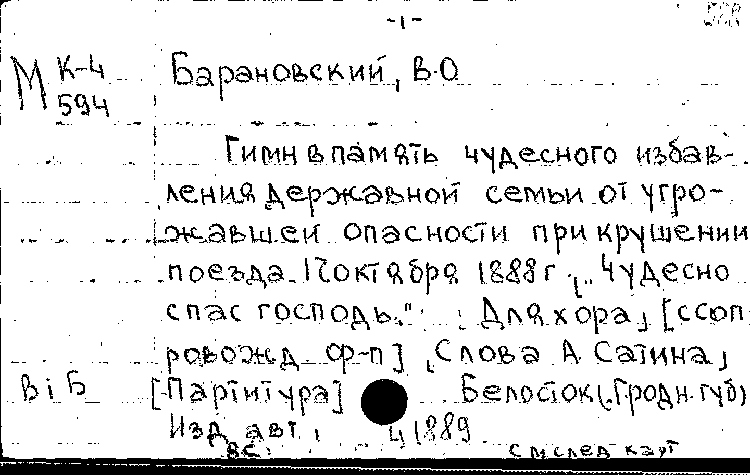 -1-
М К-4
594
Барановский, В.О
Гимн в память чудесного избав-
ления державной семьи от угро-
жавшей опасности при крушении
поезда 17 октября 1888 г. „Чудесно
спас господь." Для хора, [с соп
ровожд ф-п] Слова А. Сатина,
ВiБ [Партитура] Белосток (Гродн. губ)
Изд. авт. 1889
8с.
см след карт